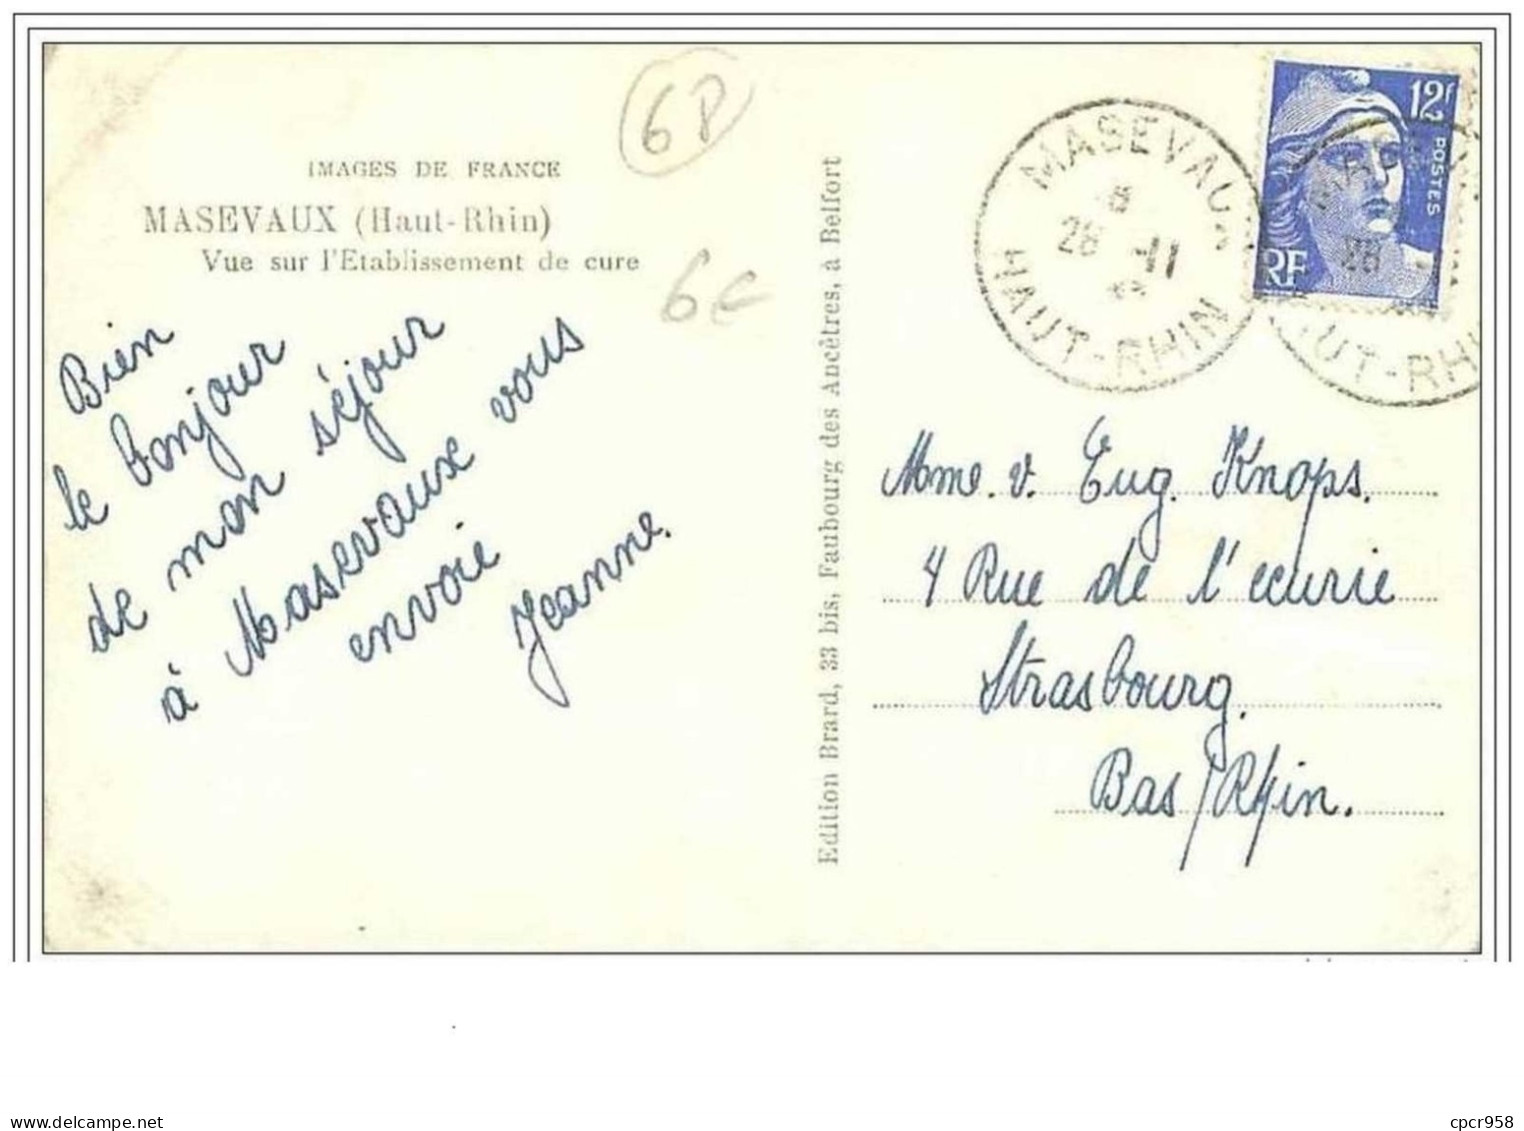 6P
IMAGES DE FRANCE
MASEVAUX (Haut-Rhin)
Vue sur l'Etablissement de cure
6€
Bien
le bonjour
de mon séjour
à Masevaux vous
envoie
Jeanne.
Edition Brard, 33 bis, Faubourg des Ancêtres, à Belfort
MASEVAUX
28 -11
HAUT-RHIN
12f
POSTES
RF
28
UT-RHI
Mme. v. Eug. Knops.
4 Rue de l'ecurie
Strasbourg.
Bas/Rhin.
cpcr958